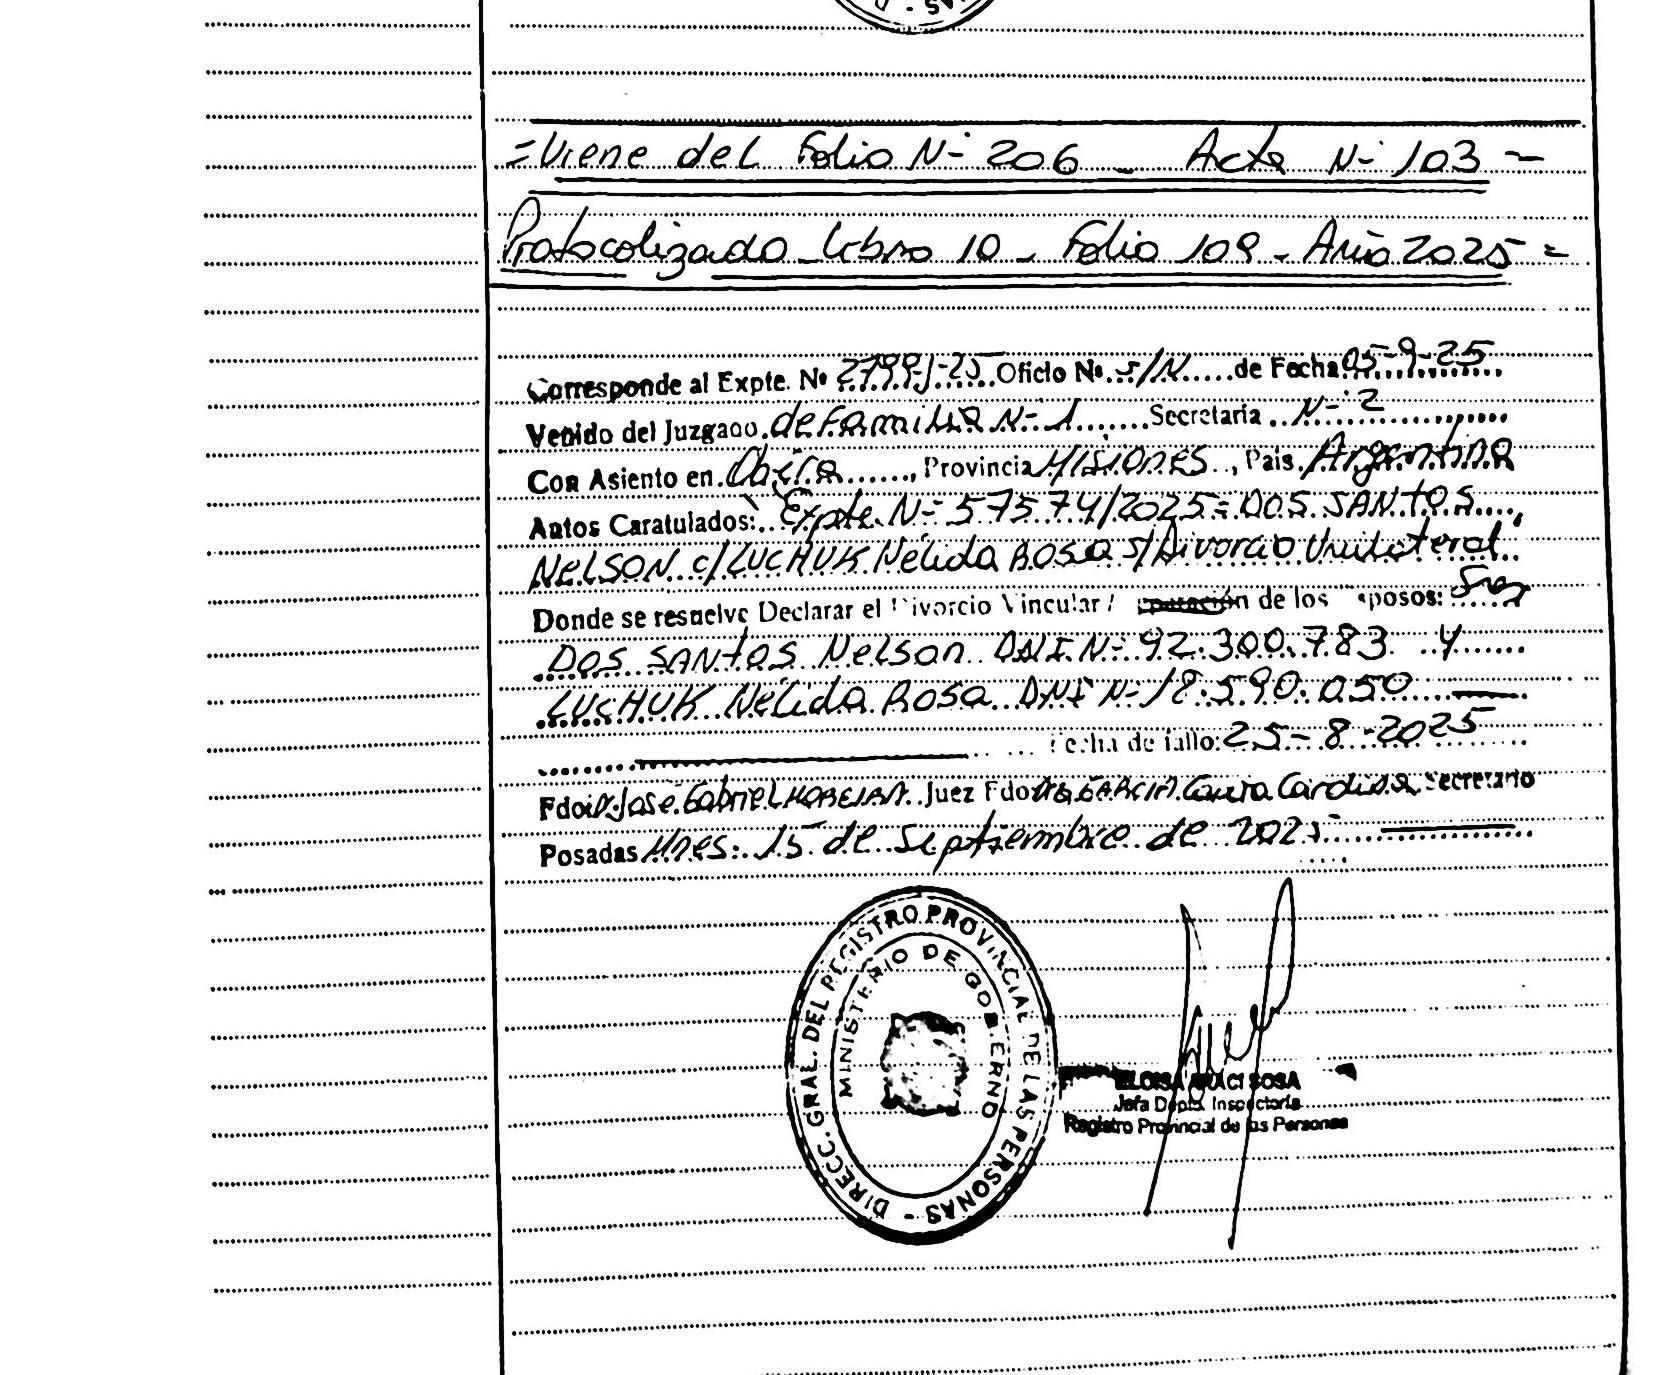 =Viene del Folio N- 206 - Acta N- 103 =
Protocolizado Libro 10 - Folio 109 - Año 2025 =
Corresponde al Expte. Nº 2799-J-25 Oficio Nº s/N de Fecha 05-9-25
Venido del Juzgado de Familia N- 1 Secretaria N- 2
Con Asiento en Oberá, Provincia Misiones, Pais Argentina
Autos Caratulados: Expte. N- 57574/2025 = DOS SANTOS
NELSON c/ LUCHUK Nélida Rosa s/Divorcio Unilateral
Donde se resuelve Declarar el Divorcio Vincular / de los Esposos:
DOS SANTOS Nelson DNI N- 92.300.783 y
LUCHUK Nélida Rosa DNI N- 18.590.050
Fecha de fallo: 25-8-2025
Fdo: Dr José Gabriel MOREIRA Juez Fdo GARCIA Secretario
Posadas Mnes: 15 de Septiembre de 2025
DIRECC. GRAL. DEL REGISTRO PROVINCIAL DE LAS PERSONAS -
MINISTERIO DE GOBIERNO
ELOISA ARACI SOSA
Jefa Dpto. Inspectoría
Registro Provincial de las Personas